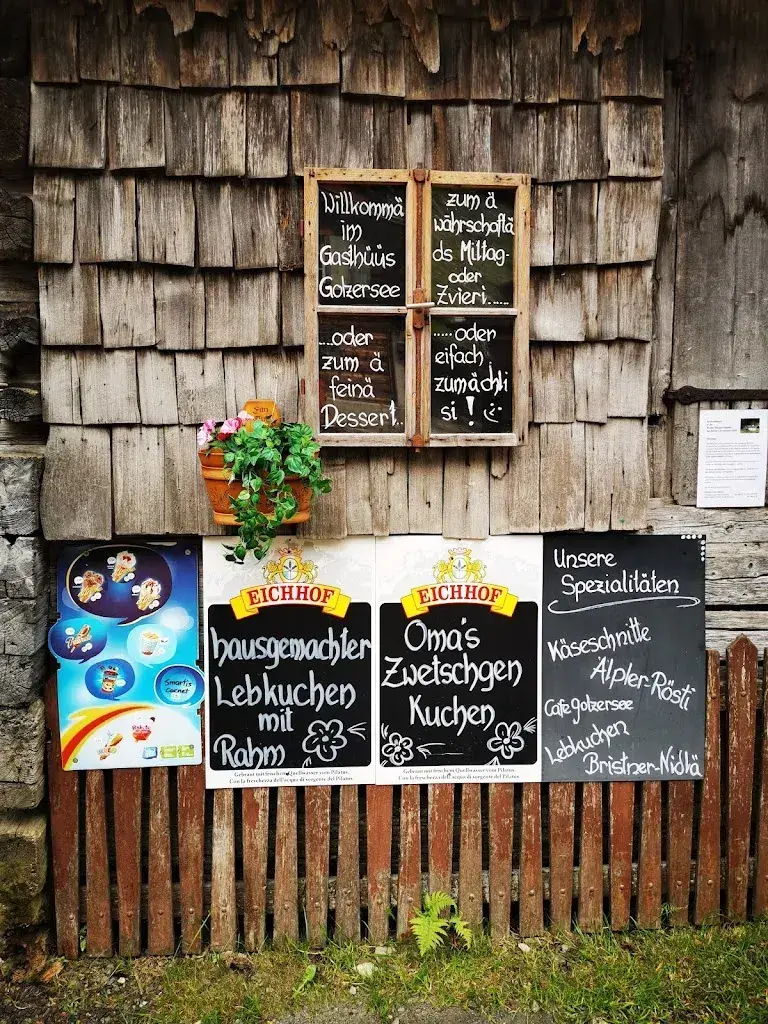 Willkommä
im
Gasthüüs
Golzersee
zum ä
währschoftä
ds Mittag-
oder
Zvieri.....
...oder
zum ä
feinä
Dessert..
.....oder
eifach
zumächli
si ! :-)
EICHHOF
hausgemachter
Lebkuchen
mit
Rahm
Gebraut mit frischem Quellwasser vom Pilatus.
Con la freschezza dell'acqua di sorgente del Pilatus.
EICHHOF
Oma's
Zwetschgen
Kuchen
Gebraut mit frischem Quellwasser vom Pilatus.
Con la freschezza dell'acqua di sorgente del Pilatus.
Unsere
Spezialitäten
Käseschnitte
Älpler-Rösti
Cafe golzersee
Lebkuchen
Bristner-Nidlä
Smarties
Cornet